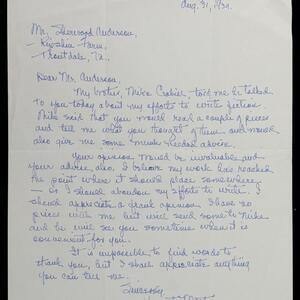 Aug. 31, 1930.
Mr. Sherwood Anderson,
Farm,
Troutdale, Va.
Dear Mr. Anderson,
My brother, Mike told me he talked
to you today about my efforts to write fiction.
Mike said that you would read a couple of pieces
and tell me what you thought of them and would
also give me some much needed advice.
Your opinion would be invaluable and
your advice also. I believe my work has reached
the point where it should place somewhere
— or I should abandon my efforts to write. I
should appreciate a frank opinion. I have no
pieces with me but will send some to Mike
and he will see you sometime when it is
convenient for you.
It is impossible to find words to
thank you, but I shall appreciate anything
you can tell me.
Sincerely,